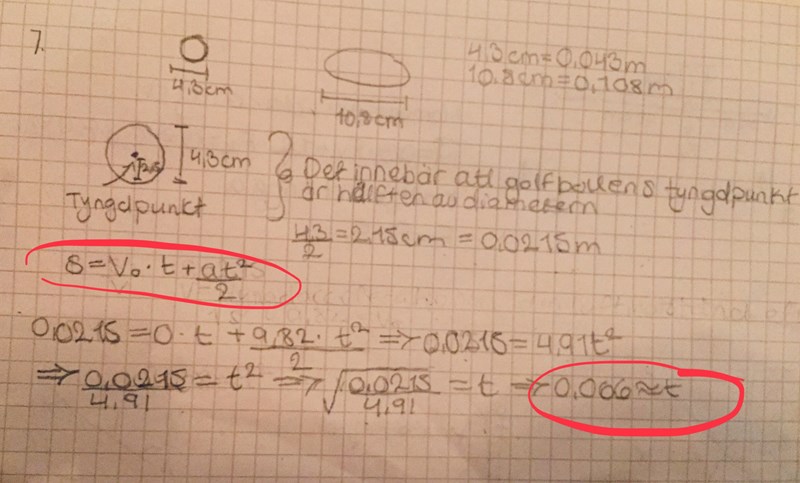 7.
4,3cm
10,8cm
4,3cm = 0,043m
10.8cm = 0,108m
4,3cm
Tyngdpunkt
Det innebär att golfbollens tyngdpunkt
är hälften av diametern
4,3/2 = 2,15cm = 0,0215m
s = V₀ · t + at²/2
0,0215 = 0 · t + 9,82 · t²/2 => 0,0215 = 4,91t²
=> 0,0215/4,91 = t² => √(0,0215/4,91) = t => 0,066 ≈ t